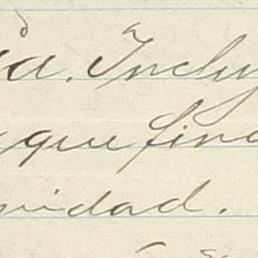 da. Incluy
que fina
nidad.